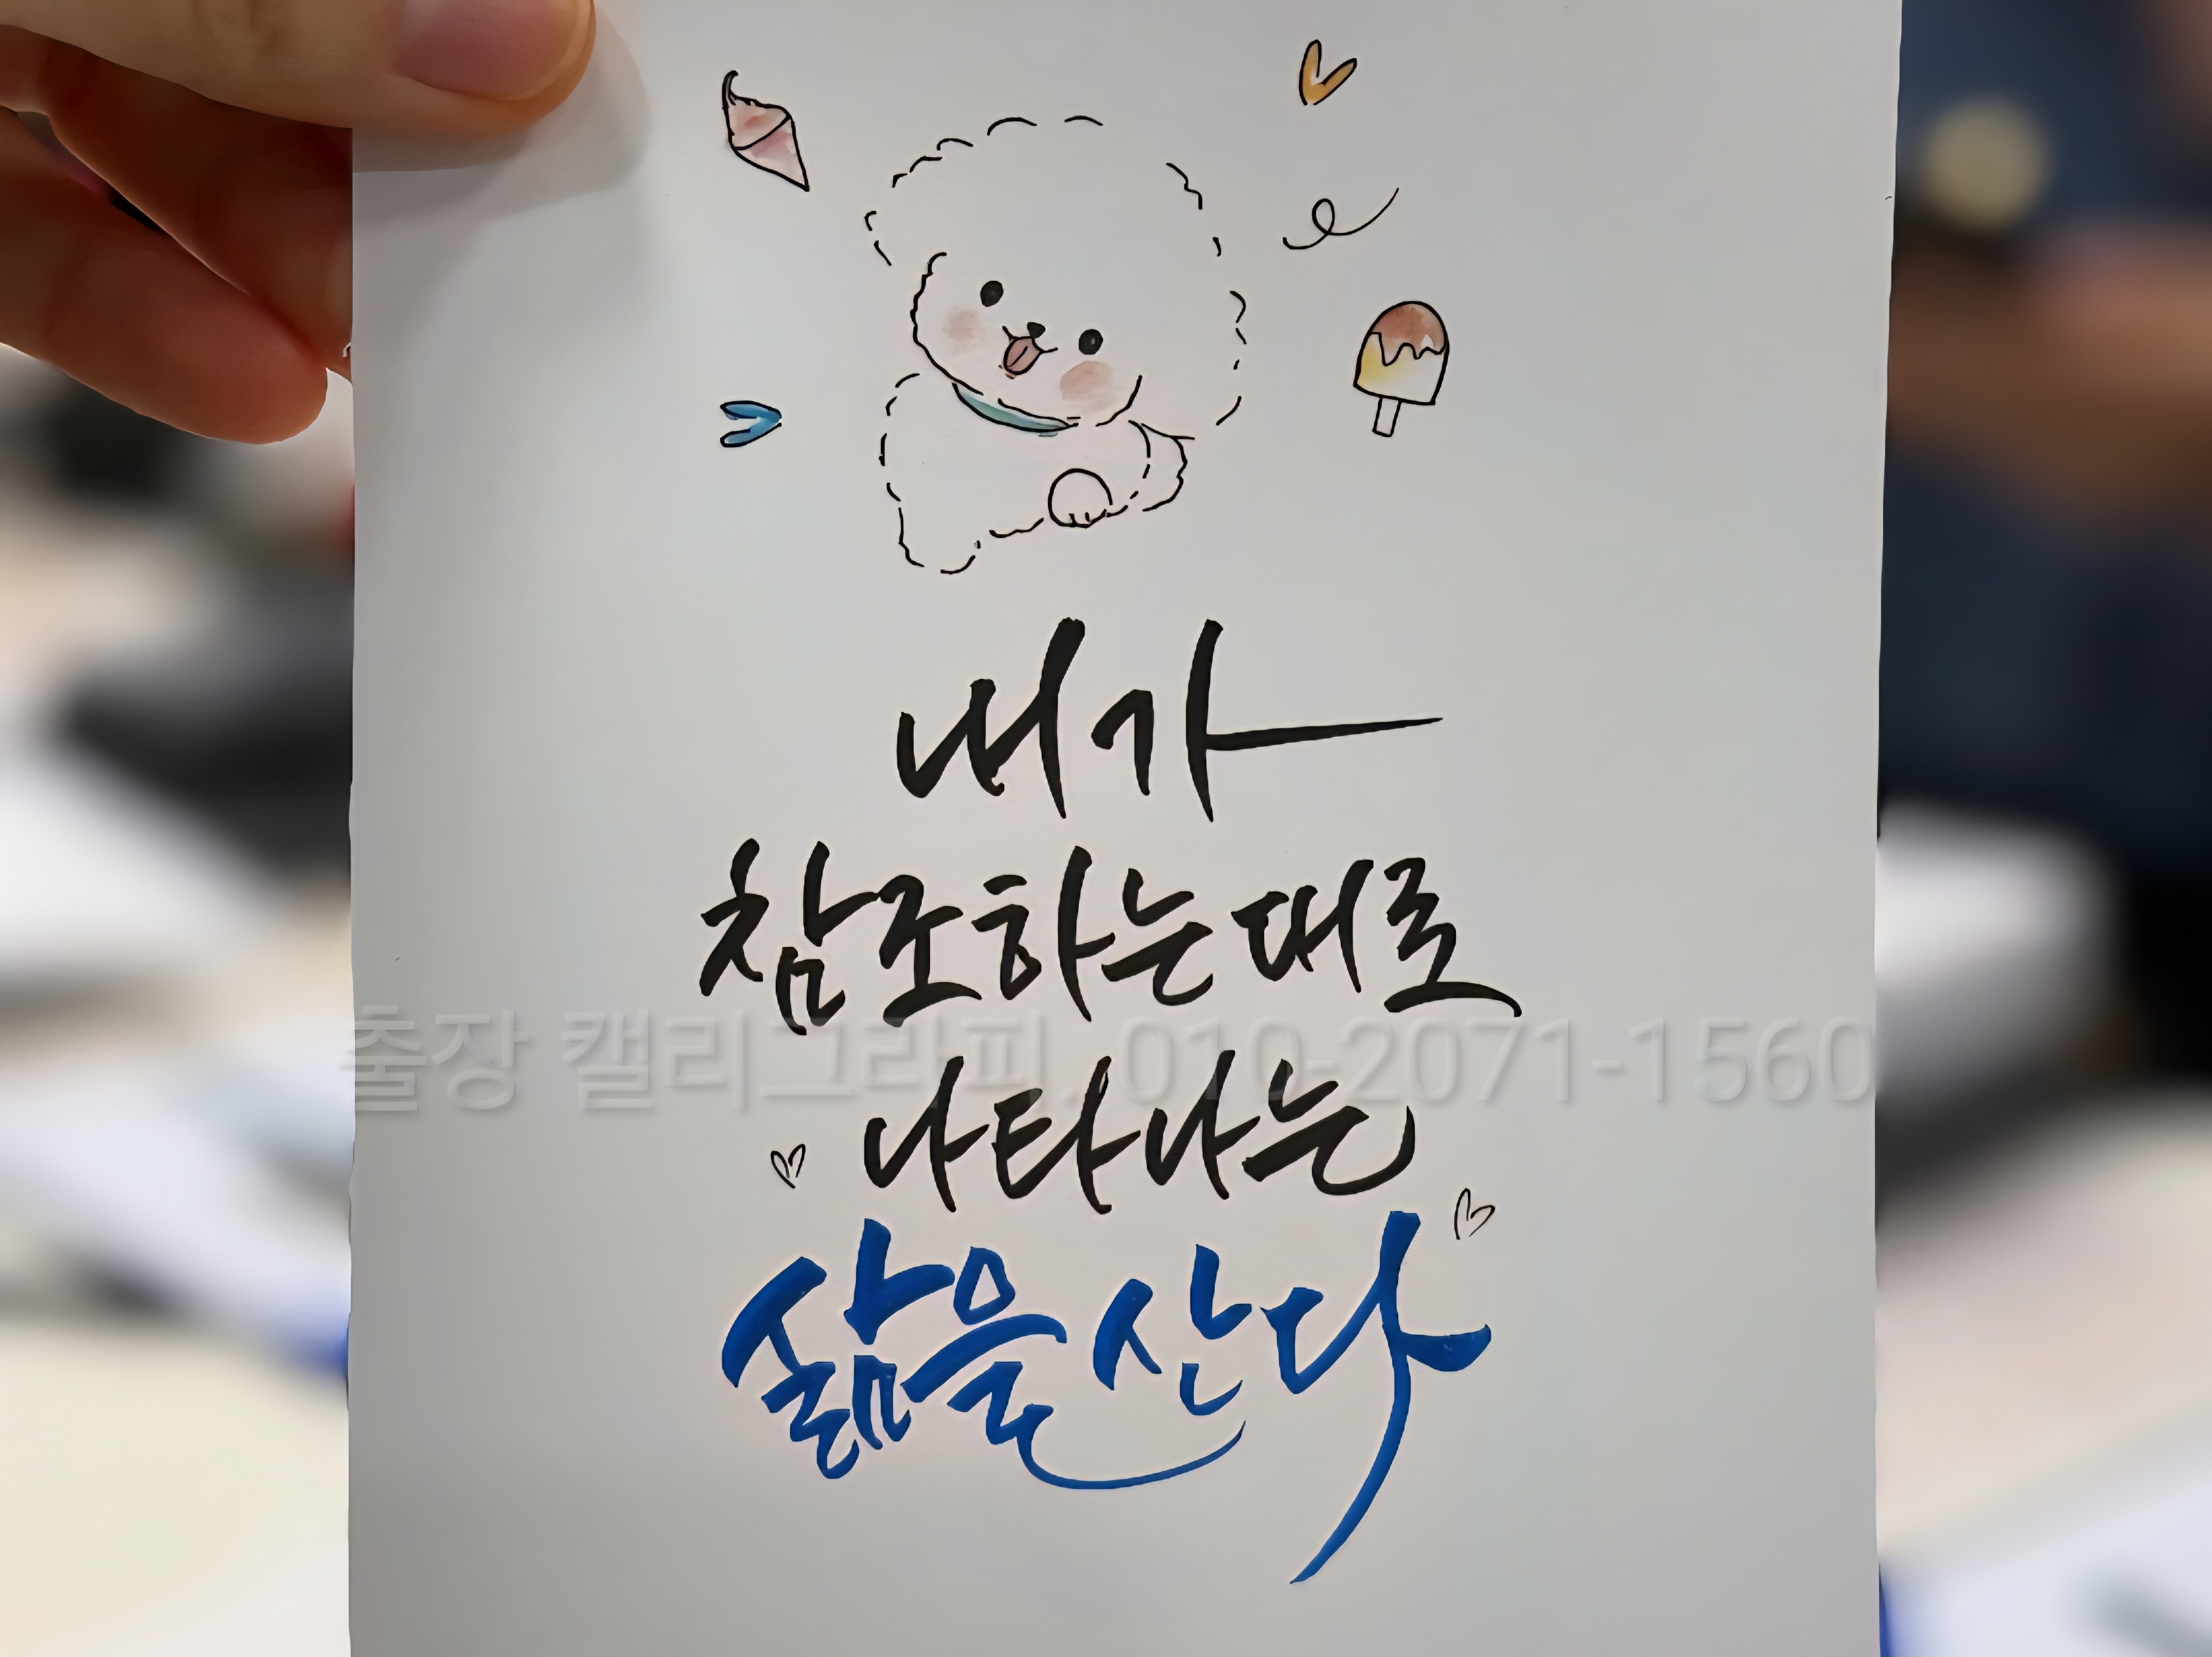 내가
참조하는대로
출장 캘리그라피. 010-2071-1560
나타나는
삶을 산다